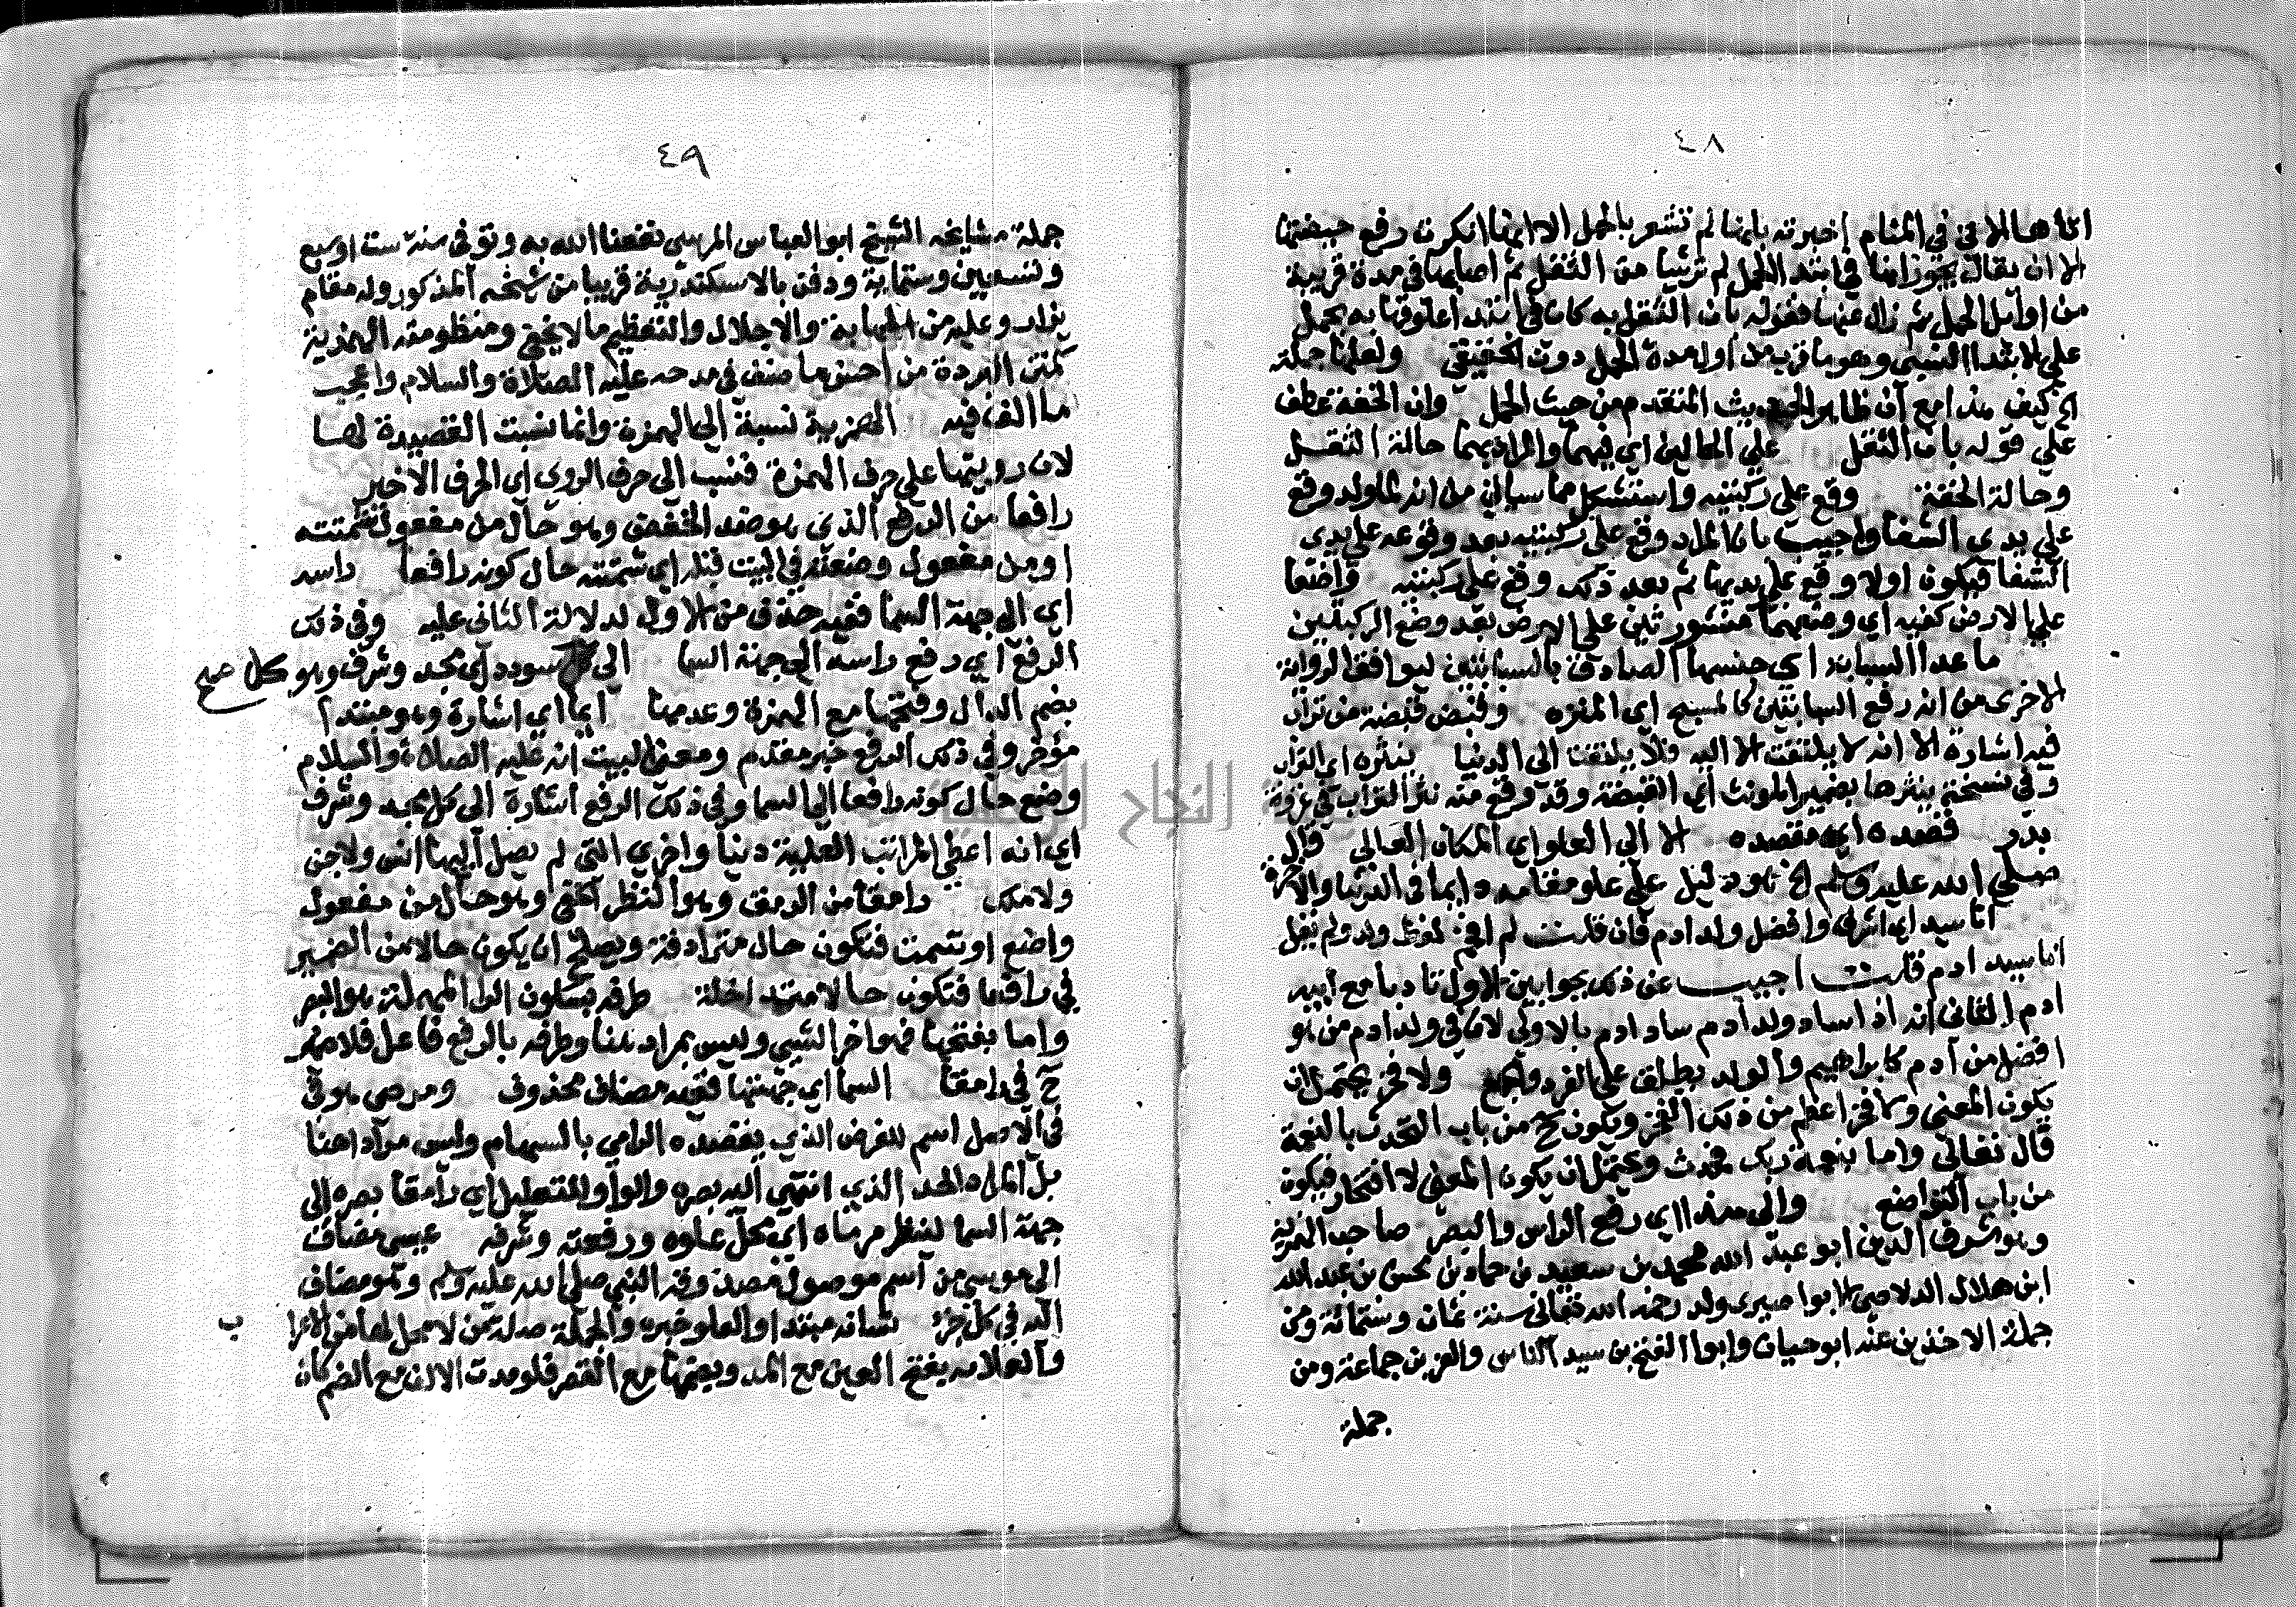 ٤٨
اتاها الاتي في المنام اخبرته بانها لم تشعر بالحمل الا انها انكرت رفع حيضتها
الا ان يقال يجوز انها في ابتدا الحمل لم ترشيا من الثقل ثم اصابها في مدة قريبة
من اوايل الحمل ثم زال عنها فقوله بان الثقل به كان في ابتدا علوقها به يحمل
علي الابتدا النسبي وهو ما قرب من اول مدة الحمل دون الحقيقي ولعلها جملة
كيف هذا مع ان ظاهر الحديث المتقدم من حيث الحمل وان الخفة عطف
علي قوله بان الثقل علي الحالين اي فيهما والمراد بهما حالة الثقل
وحالة الخفة وقع علي ركبتيه واستشكل مما سياتي من انه لما ولد وقع
علي يدي الشفا واجيب بان المراد وقع علي ركبتيه بعد وقوعه علي يدي
الشفا فيكون اولا وقع علي يديها ثم بعد ذلك وقع علي ركبتيه واضعا
علي الارض كفيه اي وضعهما منشورتين علي الارض بعد وضع الركبتين
ما عدا السبابه اي جنسها الصادق بالسبابتين ليوافق الرواية
الاخرى من انه رفع السبابتين كالمسبح اي المنزه وقبض قبضة من تراب
فيه اشارة الا انه لا يلتفت الا اليه فلا يلتفت الى الدنيا ينثره اي التراب
وفي نسخة ينثرها بضمير المونث اي القبضة وقد وقع منه نثر التراب في غزوة
بدر قصده اي مقصده الا الي العلو اي المكان العالي قال
صلي الله عليه وسلم الخ هو دليل علي علو مقامه دايما في الدنيا والاخرة
انا سيد اي اشرف وافضل ولد ادم فان قلت لم اقحم لفظ ولد ولم يقل
انا سيد ادم قلت اجيب عن ذلك بجوابين الاول تادبا مع ابيه
ادم الثاني انه اذا ساد ولد ادم ساد ادم بالاولى لان في ولد ادم من هو
افضل من آدم كابراهيم والولد يطلق على الفرد والجمع ولا فخر يحتمل ان
يكون المعنى ولا فخر اعظم من ذلك الفخر ويكون ح من باب التحدث بالنعمة
قال تعالى واما بنعمة ربك فحدث ويحتمل ان يكون المعنى لا افتخار فيكون
من باب التواضع والى هذا اي رفع الراس والبصر صاحب الهمزية
وهو شرف الدين ابو عبد الله محمد بن سعيد بن حماد بن محسن بن عبد الله
ابن هلال الدلاصي الابوا صيري ولد رحمه الله تعالى سنة ثمان وستمائة ومن
جملة الاخذين عنه ابو حيان وابوا الفتح بن سيد الناس والعز بن جماعة ومن
جملة
٤٩
جملة مشايخه الشيخ ابو العباس المرسي نفعنا الله به وتوفى سنة ست او سبع
وتسعين وستماية ودفن بالاسكندرية قريبا من شيخه المذكور وله مقام
يزار وعليه من المهابة والاجلال والتعظيم ما لا يخفى ومنظومته الهمزية
كمتن البردة من احسن ما صنف في مدحه عليه الصلاة والسلام واعجب
ما الف فيه الهمزية نسبة الى الهمزة وانما نسبت القصيدة لها
لان رويتها علي حرف الهمزة فنسب الى حرف الروى اي الحرف الاخير
رافعا من الرفع الذي هو ضد الخفض وهو حال من مفعول شمتته
او من مفعول وضعته في البيت قبله اي شمتته حال كونه رافعا راسه
اي الى جهة السما ففيه حذف من الاول لدلالة الثانى عليه وفي ذلك
الرفع اي رفع راسه الى جهة السما الى سودد اي مجد وشرف وهو كل صح
بضم الدال وفتحها مع الهمزة وعدمها ايما اي اشارة وهو مبتدا
مؤخر وفي ذلك الرفع خبر مقدم ومعنى البيت انه عليه الصلاة والسلام
وضع حال كونه رافعا الى السما وفي ذلك الرفع اشارة الى كل مجد وشرف
اي انه اعطى المراتب العلية دنيا واخري التي لم يصل اليها انس ولا جن
ولا ملك رامقا من الرمق وهو النظر الخفي وهو حال من مفعول
واضع او شمت فتكون حال مترادفة ويصلح ان يكون حالا من الضمير
في رافعا فتكون حالا متداخلة طرفه بسكون الراء المهملة هو البصر
واما بفتحها فهو اخر الشيي وليس بمراد هنا وطرفه بالرفع فاعل فلا ضمير
ح في رامقا السما اي جهتها ففيه مضاف محذوف ومرمى هو في
في الاصل اسم للغرض الذي يقصده الرامي بالسهام وليس مرادا هنا
بل المراد الحد الذي انتهى اليه بصره والواو للتعليل اي رامقا بصره الى
جهة السما لينظر مرماه اي محل علوه ورفعته وشرفه عيسى مضاف
الى موسى من اسم موصول مصدوقه النبي صلى الله عليه وسلم وهو مضاف
اليه في كل جزء شانه مبتدا والعلو خبره والجملة صلة من لا محل لها من الاعرا
ب
والعلا به بفتح العين مع المد وبضمها مع القصر فلو مدت الالف مع الضم كان